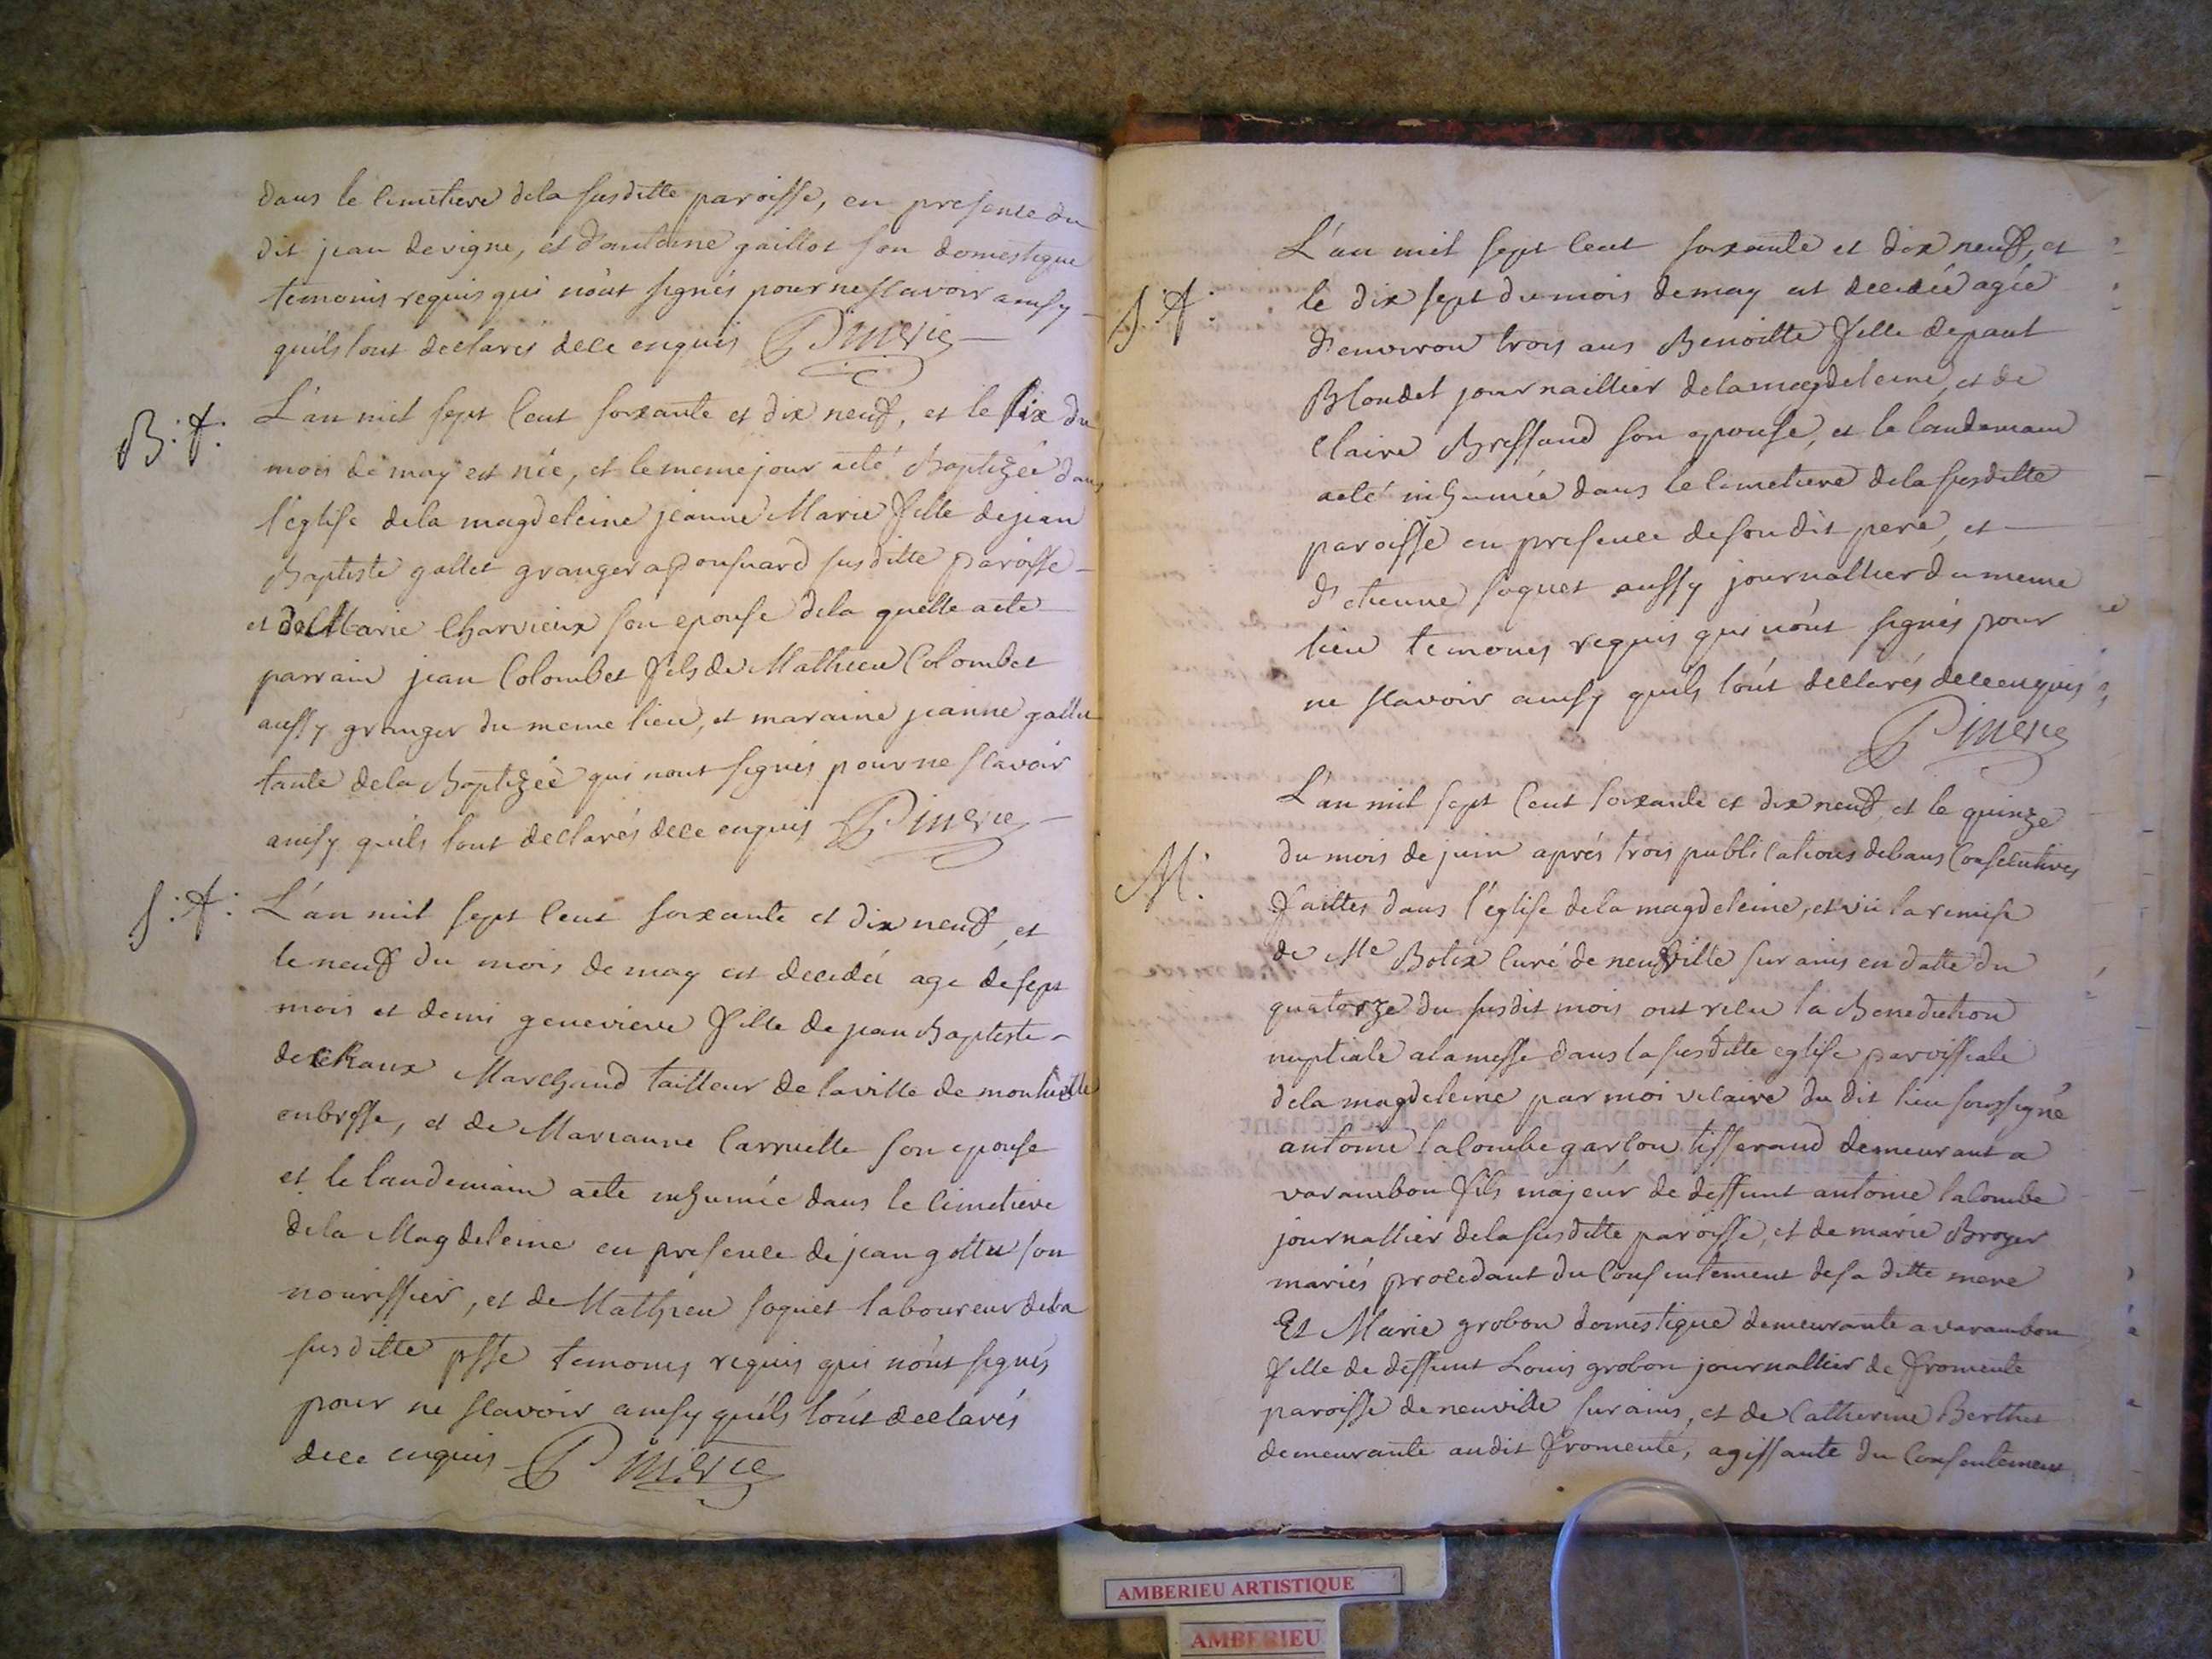 dans le cimetiere dela susditte paroisse, en presence du
dit jean devigne, et d'antoine gaillot son domestique
temoins requis qui n'ont signés pour ne scavoir ainsy
quils lont declarés dece enquis Pinerie
B: f: L'an mil sept cent soixante et dix neuf, et le six du
mois de may est née, et le meme jour a eté Baptizée dans
l'eglise dela magdeleine jeanne Marie fille de jean
Baptiste gallet granger a ponsuard susditte paroisse
et de Marie Charvieux son epouse dela quelle a ete
parrain jean Colombet fils de Mathieu Colombet
aussy granger du meme lieu, et maraine jeanne gallet
tante dela Baptizée qui n'ont signés pour ne scavoir
ainsy quils l'ont declarés dece enquis Pinerie
S: f: L'an mil sept cent soixante et dix neuf, et
le neuf du mois de may est decedée age de sept
mois et demi genevieve fille de jean Baptiste
dechaux Marchand tailleur de la ville de montluelle
en bresse, et de Marianne Carruelle son epouse
et le landemain a ete inhumée dans le cimetiere
dela Magdeleine en presence de jean gottu son
nourissier, et de Mathieu foquet laboureur dela
susditte psse temoins requis qui n'ont signés
pour ne scavoir ainsy quils l'ont declarés
dece enquis Pinerie
S: f: L'an mil sept cent soixante et dix neuf, et
le dix sept du mois de may est decedée agée
d'environ trois ans Benoitte fille de paul
Blondel journaillier dela magdeleine, et de
Claire Bressand son epouse, et le landemain
a eté inhumée dans le cimetiere dela susditte
paroisse en presence de son dit pere, et
d'etienne foquet aussy journallier du meme
lieu temoins requis qui n'ont signés pour
ne scavoir ainsy quils l'ont declarés dece enquis
Pinerie
M: L'an mil sept cent soixante et dix neuf, et le quinze
du mois de juin aprés trois publications de bans Consecutives
faittes dans l'eglise dela magdeleine, et vû la remise
de Me Botex Curé de neufville sur ains en datte du
quatorze du susdit mois ont recu la Benediction
nuptiale a la messe dans la susditte eglise paroissiale
dela magdeleine par moi vicaire du dit lieu soussigné
antoine lacombe garcon tisserand demeurant a
varambon fils majeur de deffunt antoine lacombe
journallier dela susditte paroisse, et de marie Broyer
mariés procedant du Consentement de sa ditte mere
Et Marie grobon domestique demeurante a varambon
fille de deffunt Louis grobon journallier de fromente
paroisse de neuville sur ains, et de Catherine Berthet
demeurante au dit fromente, agissante du Consentement
AMBERIEU ARTISTIQUE
AMBERIEU